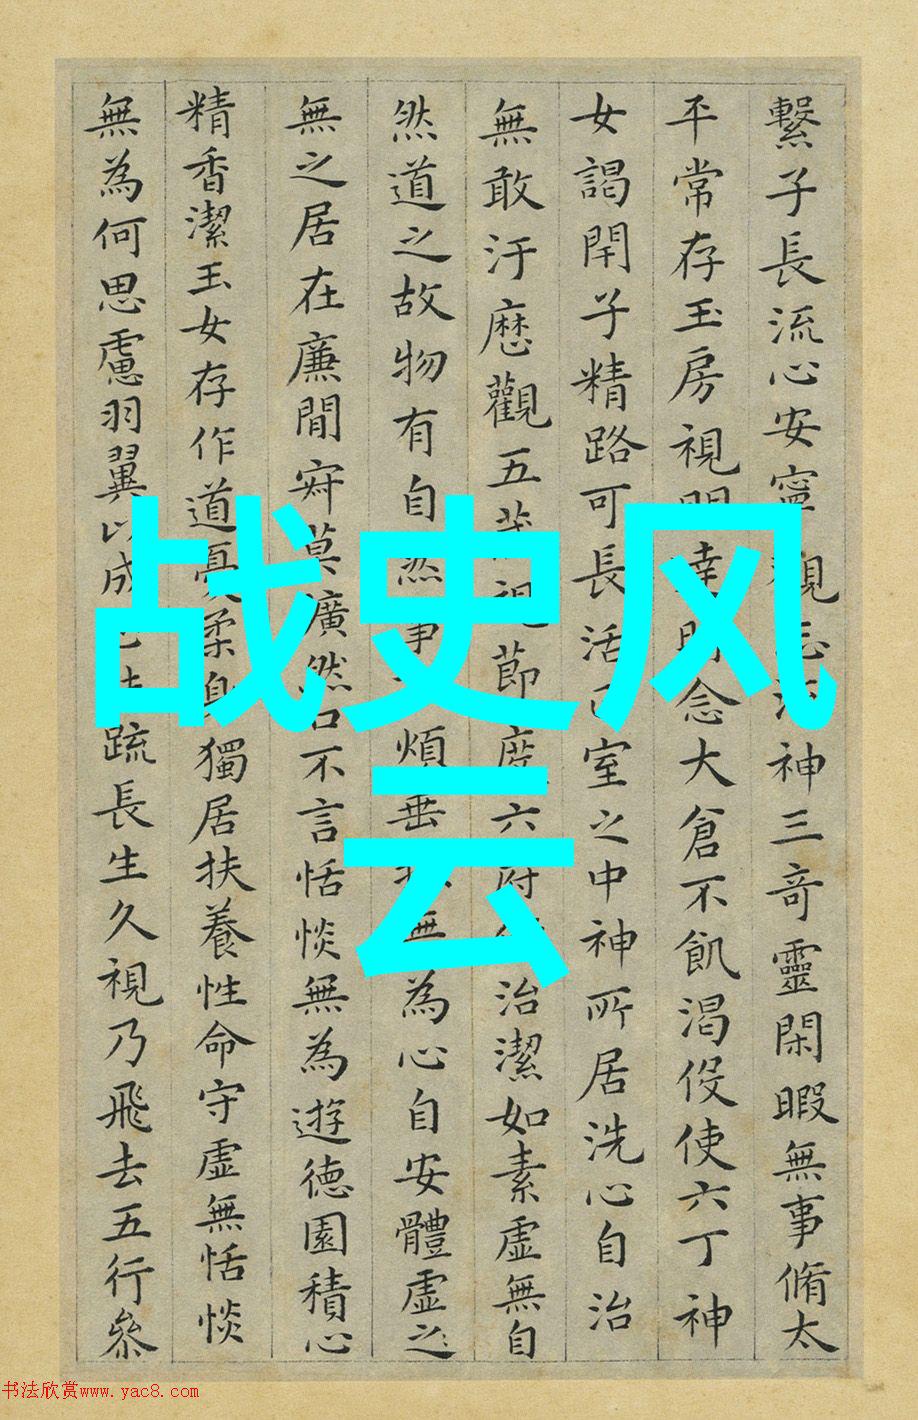 繫子長流心安寧觀志流神三竒靈閑暇無事脩太
平常存玉房視明達時念大倉不飢渴伇使六丁神
女謁閇子精路可長活正室之中神所居洗心自治
無敢汙歷觀五藏視節度六府修治潔如素虛無自
然道之故物有自然事不煩垂拱無為心自安體虛之
無之居在廉間寂莫廣然口不言恬惔無為遊德園積心
精香潔玉女存作道憂柔身獨居扶養性命守虛無恬惔
無為何思慮羽翼以成正扶疏長生久視乃飛去五行參
战史风
云
书法欣赏www.yac8.com